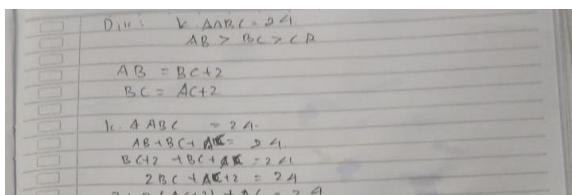 Dik : k. ΔABC = 24
AB > BC > CA
AB = BC+2
BC = AC+2
k. Δ ABC = 24.
AB+BC+ AC = 24
BC+2 +BC+ AC = 24
2BC +AC+2 = 24